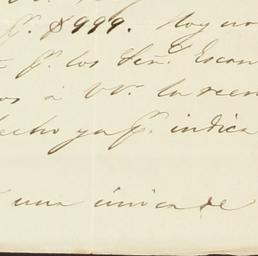 pr. $999. Hoy no
pr. los Señ. Escan
os á VV. la reem
echo ya pr. indica
una única de